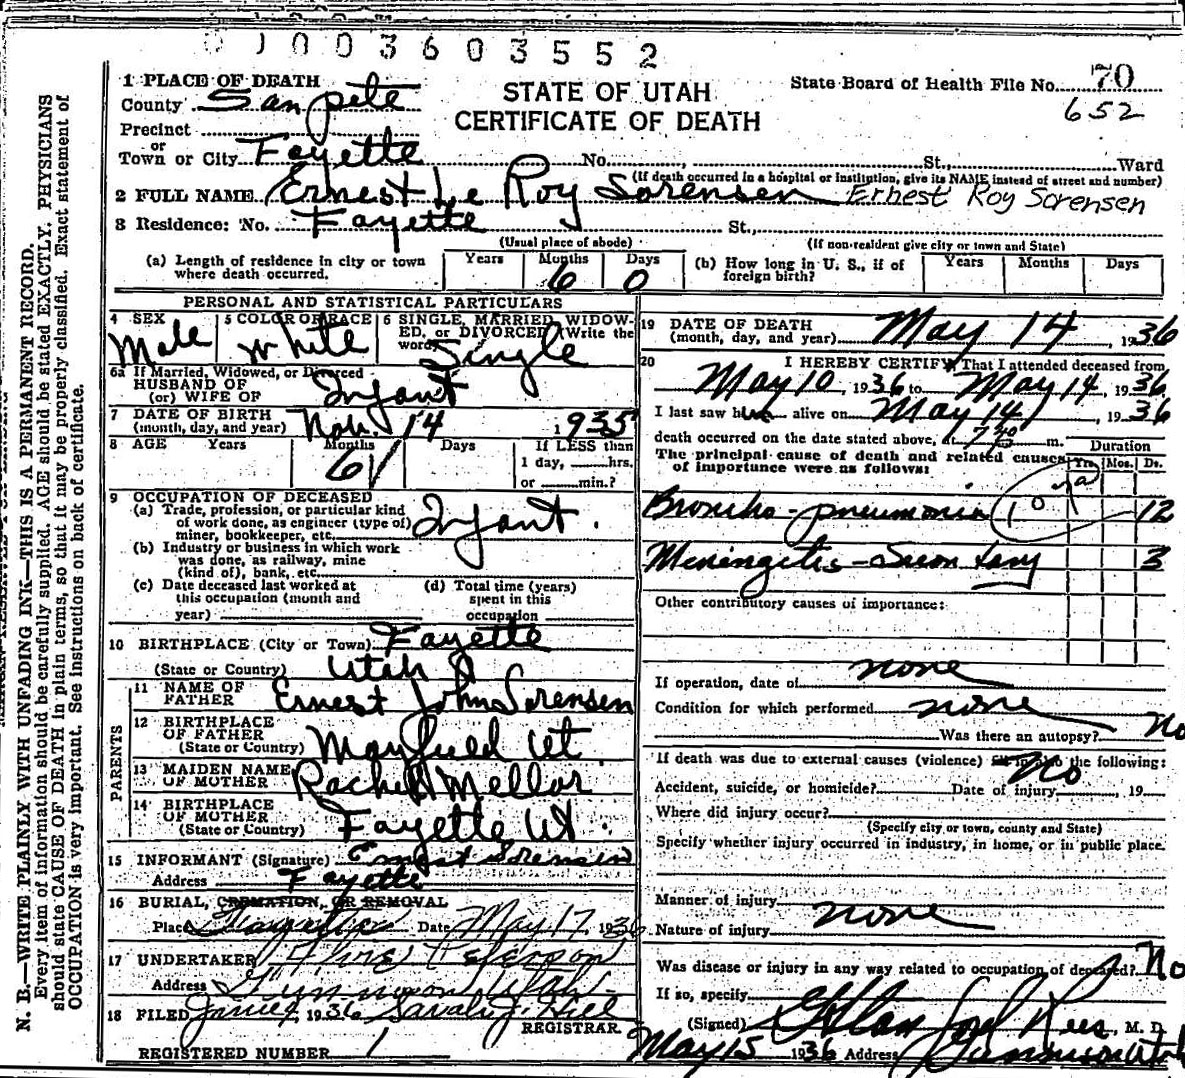 0 0 0 0 3 6 0 3 5 5 2
1 PLACE OF DEATH
County Sanpete
Precinct
or
Town or City Fayette No. St., Ward
STATE OF UTAH
CERTIFICATE OF DEATH
State Board of Health File No. 70
652
(If death occurred in a hospital or institution, give its NAME instead of street and number)
2 FULL NAME Ernest Le Roy Sorensen Ernest Roy Sorensen
3 Residence: No. Fayette St.,
(Usual place of abode) (If non-resident give city or town and State)
(a) Length of residence in city or town where death occurred. Years Months 6 Days 0
(b) How long in U. S., if of foreign birth? Years Months Days
PERSONAL AND STATISTICAL PARTICULARS
4 SEX Male
5 COLOR OR RACE White
6 SINGLE, MARRIED, WIDOWED, or DIVORCED (Write the word) Single
6a If Married, Widowed, or Divorced
HUSBAND OF
(or) WIFE OF Infant
7 DATE OF BIRTH
(month, day, and year) Nov. 14 1935
8 AGE Years Months 6 Days If LESS than
1 day, hrs.
or min.?
9 OCCUPATION OF DECEASED
(a) Trade, profession, or particular kind
of work done, as engineer (type of)
miner, bookkeeper, etc. Infant.
(b) Industry or business in which work
was done, as railway, mine
(kind of), bank, etc.
(c) Date deceased last worked at
this occupation (month and
year)
(d) Total time (years)
spent in this
occupation
10 BIRTHPLACE (City or Town) Fayette
(State or Country) Utah
PARENTS
11 NAME OF
FATHER Ernest John Sorensen
12 BIRTHPLACE
OF FATHER
(State or Country) Mayfield Ut.
13 MAIDEN NAME
OF MOTHER Rachel Mellor
14 BIRTHPLACE
OF MOTHER
(State or Country) Fayette Ut.
15 INFORMANT (Signature) Ernest Sorensen
Address Fayette
16 BURIAL, CREMATION, OR REMOVAL
Place Fayette Date May 17, 1936
17 UNDERTAKER
Address Gunnison Utah
18 FILED 1936 Sarah J. Hill
REGISTRAR
REGISTERED NUMBER 1
19 DATE OF DEATH
(month, day, and year) May 14, 1936
20 I HEREBY CERTIFY, That I attended deceased from
May 10, 1936 to May 14, 1936
I last saw him alive on May 14, 1936
death occurred on the date stated above, at m.
The principal cause of death and related causes
of importance were as follows:
Duration
Yrs. Mos. Ds.
Broncho-pneumonia 12
Meningitis - 3
Other contributory causes of importance:
If operation, date of none
Condition for which performed none
Was there an autopsy? No
If death was due to external causes (violence) fill in also the following: No
Accident, suicide, or homicide? Date of injury , 19
Where did injury occur?
(Specify city or town, county and State)
Specify whether injury occurred in industry, in home, or in public place.
Manner of injury none
Nature of injury
Was disease or injury in any way related to occupation of deceased? No
If so, specify
(Signed) Rees, M. D.
May 15 1936 Address Gunnison Utah
N. B.—WRITE PLAINLY WITH UNFADING INK—THIS IS A PERMANENT RECORD.
Every item of information should be carefully supplied. AGE should be stated EXACTLY. PHYSICIANS
should state CAUSE OF DEATH in plain terms, so that it may be properly classified. Exact statement of
OCCUPATION is very important. See instructions on back of certificate.